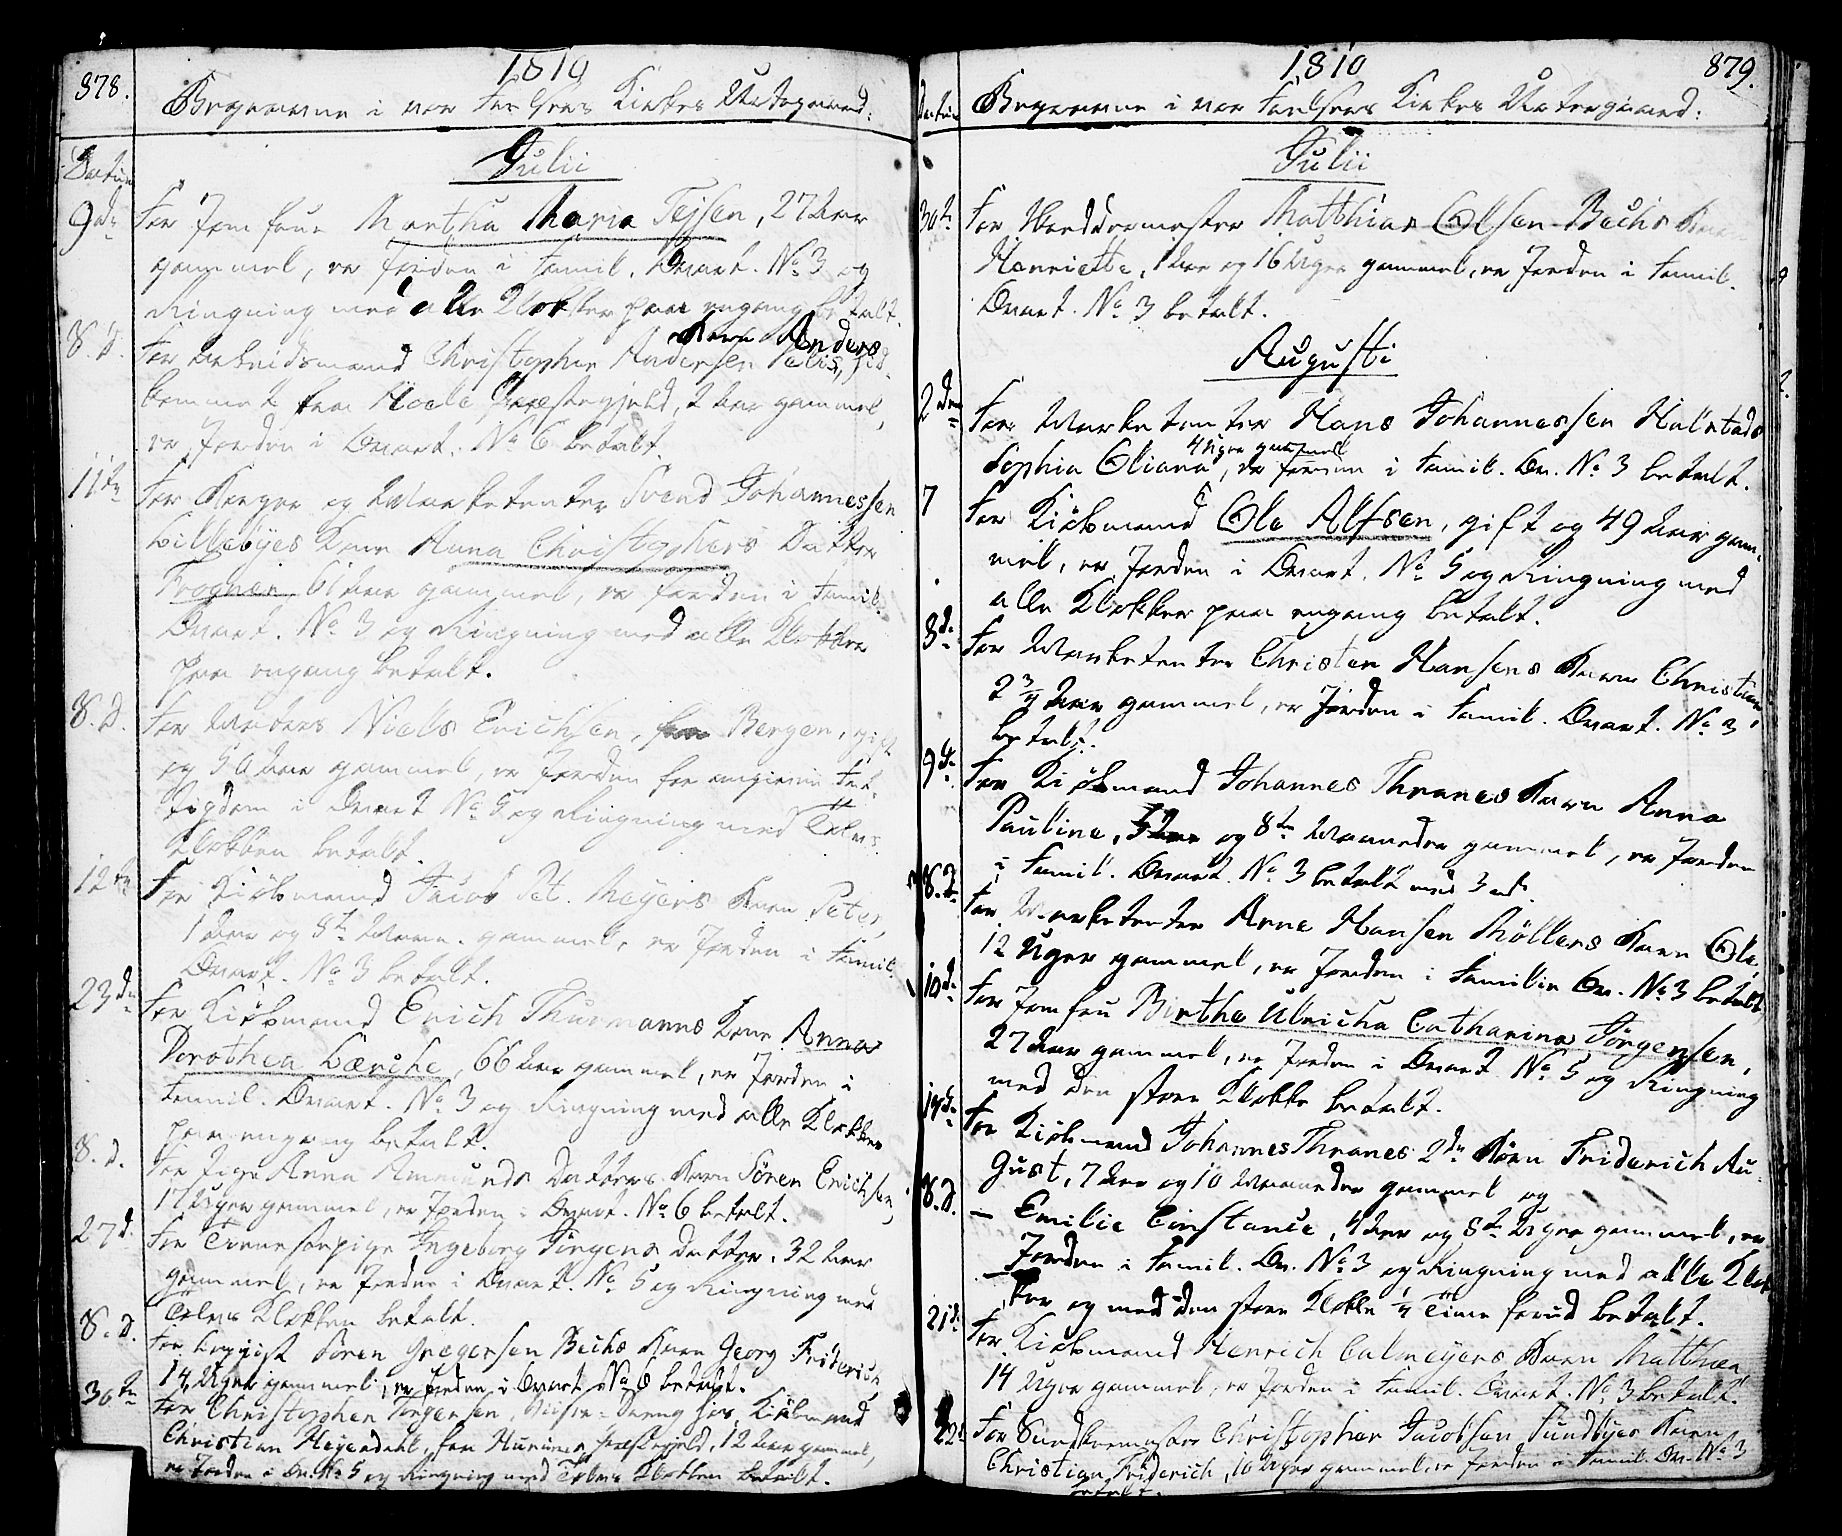 878.
1810
Begravne i vor Frelsers Kirkes Urtegaard:
Datum
Julii
9de For Jomfrue Martha Maria Tejsen, 27 Aar
gammel, er Jorden i Famil. Qvart. No 3 og
Ringning med alle Klokker paa engang betalt.
S. D. For Arbeidsmand Christopher Andersen Barn Anders
kommet fra Præstegjeld, 2 Aar gammel,
er Jorden i Qvart. No 6 betalt.
11te For Borger og Marketenter Svend Johannessen
Lillebyes Kone Anna Christophers Datter
Frogner 61 Aar gammel, er Jorden i Famil.
Qvart. No 3 og Ringning med alle Klokker
paa engang betalt.
S. D. For Niels Erichsen, Bergen, gift
og Aar gammel, er Jorden for
i Qvart No 5 og Ringning med Tolvs
Klokken betalt.
12te For Kiøbmand Jacob Pet. Meyers Barn Peter,
1 Aar og gammel, er Jorden i Famil.
Qvart. No 3 betalt.
23de For Kiøbmand Erich Thurmanns Kone Anna
Dorothea Lærche, 66 Aar gammel, er Jorden i
Famil. Qvart. No 3 og Ringning med alle Klokker
paa engang betalt.
S. D. For Pige Anna Amunds Datters Barn Sören Erichsen,
17 Uger gammel, er Jorden i Qvart. No 6 betalt.
27de For Tienestepige Ingeborg Jörgens Datter, 32 Aar
gammel, er Jorden i Qvart. No 5 og Ringning med
Tolvs Klokken betalt.
S. D. For Kopiist Sören Gregersen Bechs Barn Georg Friderich
14 Uger gammel, er Jorden i Qvart No 6 betalt.
30te For Christopher Jörgensen, Dreng hos Kiøbmand
Christian Heyerdahl, fra Hurum Præstegjeld, 12 Aar gammel,
er Jorden i Qv. No 5 og Ringning med Tolvs Klokken betalt.
879.
1810
Datum
Begravne i vor Frelsers Kirkes Urtegaard:
Julii
30te For Matthias Olsen Bechs Barn
Henriette, 1 Aar og 16 Uger gammel, er Jorden i Famil.
Qvart. No 3 betalt.
Augusti
2den For Marketenter Hans Johannessen
Sophia Oliana, 4 Uger gammel er Jorden i Famil. Qv. No 3 betalt.
7 For Kiøbmand Ole Alfsen, gift og 49 Aar gam-
mel, er Jorden i Qvart. No 5 og Ringning med
alle Klokker paa engang betalt.
8de For Marketenter Christen Hansens Barn Christian,
2 3/4 Aar gammel, er Jorden i Famil. Qvart. No 3
betalt.
9de For Kiøbmand Johannes Thranes Barn Anna
Pauline, 5 Aar og 8te Maaneder gammel, er Jorden
i Famil. Qvart. No 3 betalt med 3 rd.
S. D. For Marketenter Arne Hansen Möllers Barn Ole,
12 Uger gammel, er Jorden i Familie Qv. No 3 betalt,
10de For Jomfru Birthe Ulricha Catharina Jörgensen,
27 Aar gammel, er Jorden i Qvart. No 5 og Ringning
med den store Klokke betalt.
14de For Kiøbmand Johannes Thranes 2de Börn Friderich Au-
gust, 7 Aar og 10 Maaneder gammel og
S. D. — Emilie Constance, 4 Aar og 8te Uger gammel, er
Jorden i Famil. Qv. No 3 og Ringning med alle Klok-
ker og med den store Klokke 1/4 Time forud betalt.
21de For Kiøbmand Henrich Calmeyers Barn Matthea,
14 Uger gammel, er Jorden i Famil. Qvart. No 3 betalt.
22de For Christopher Jacobsen Sundbyes Barn
Christian Friderich, 10 Uger gammel, er Jorden i Famil. Qv. No 3
betalt.